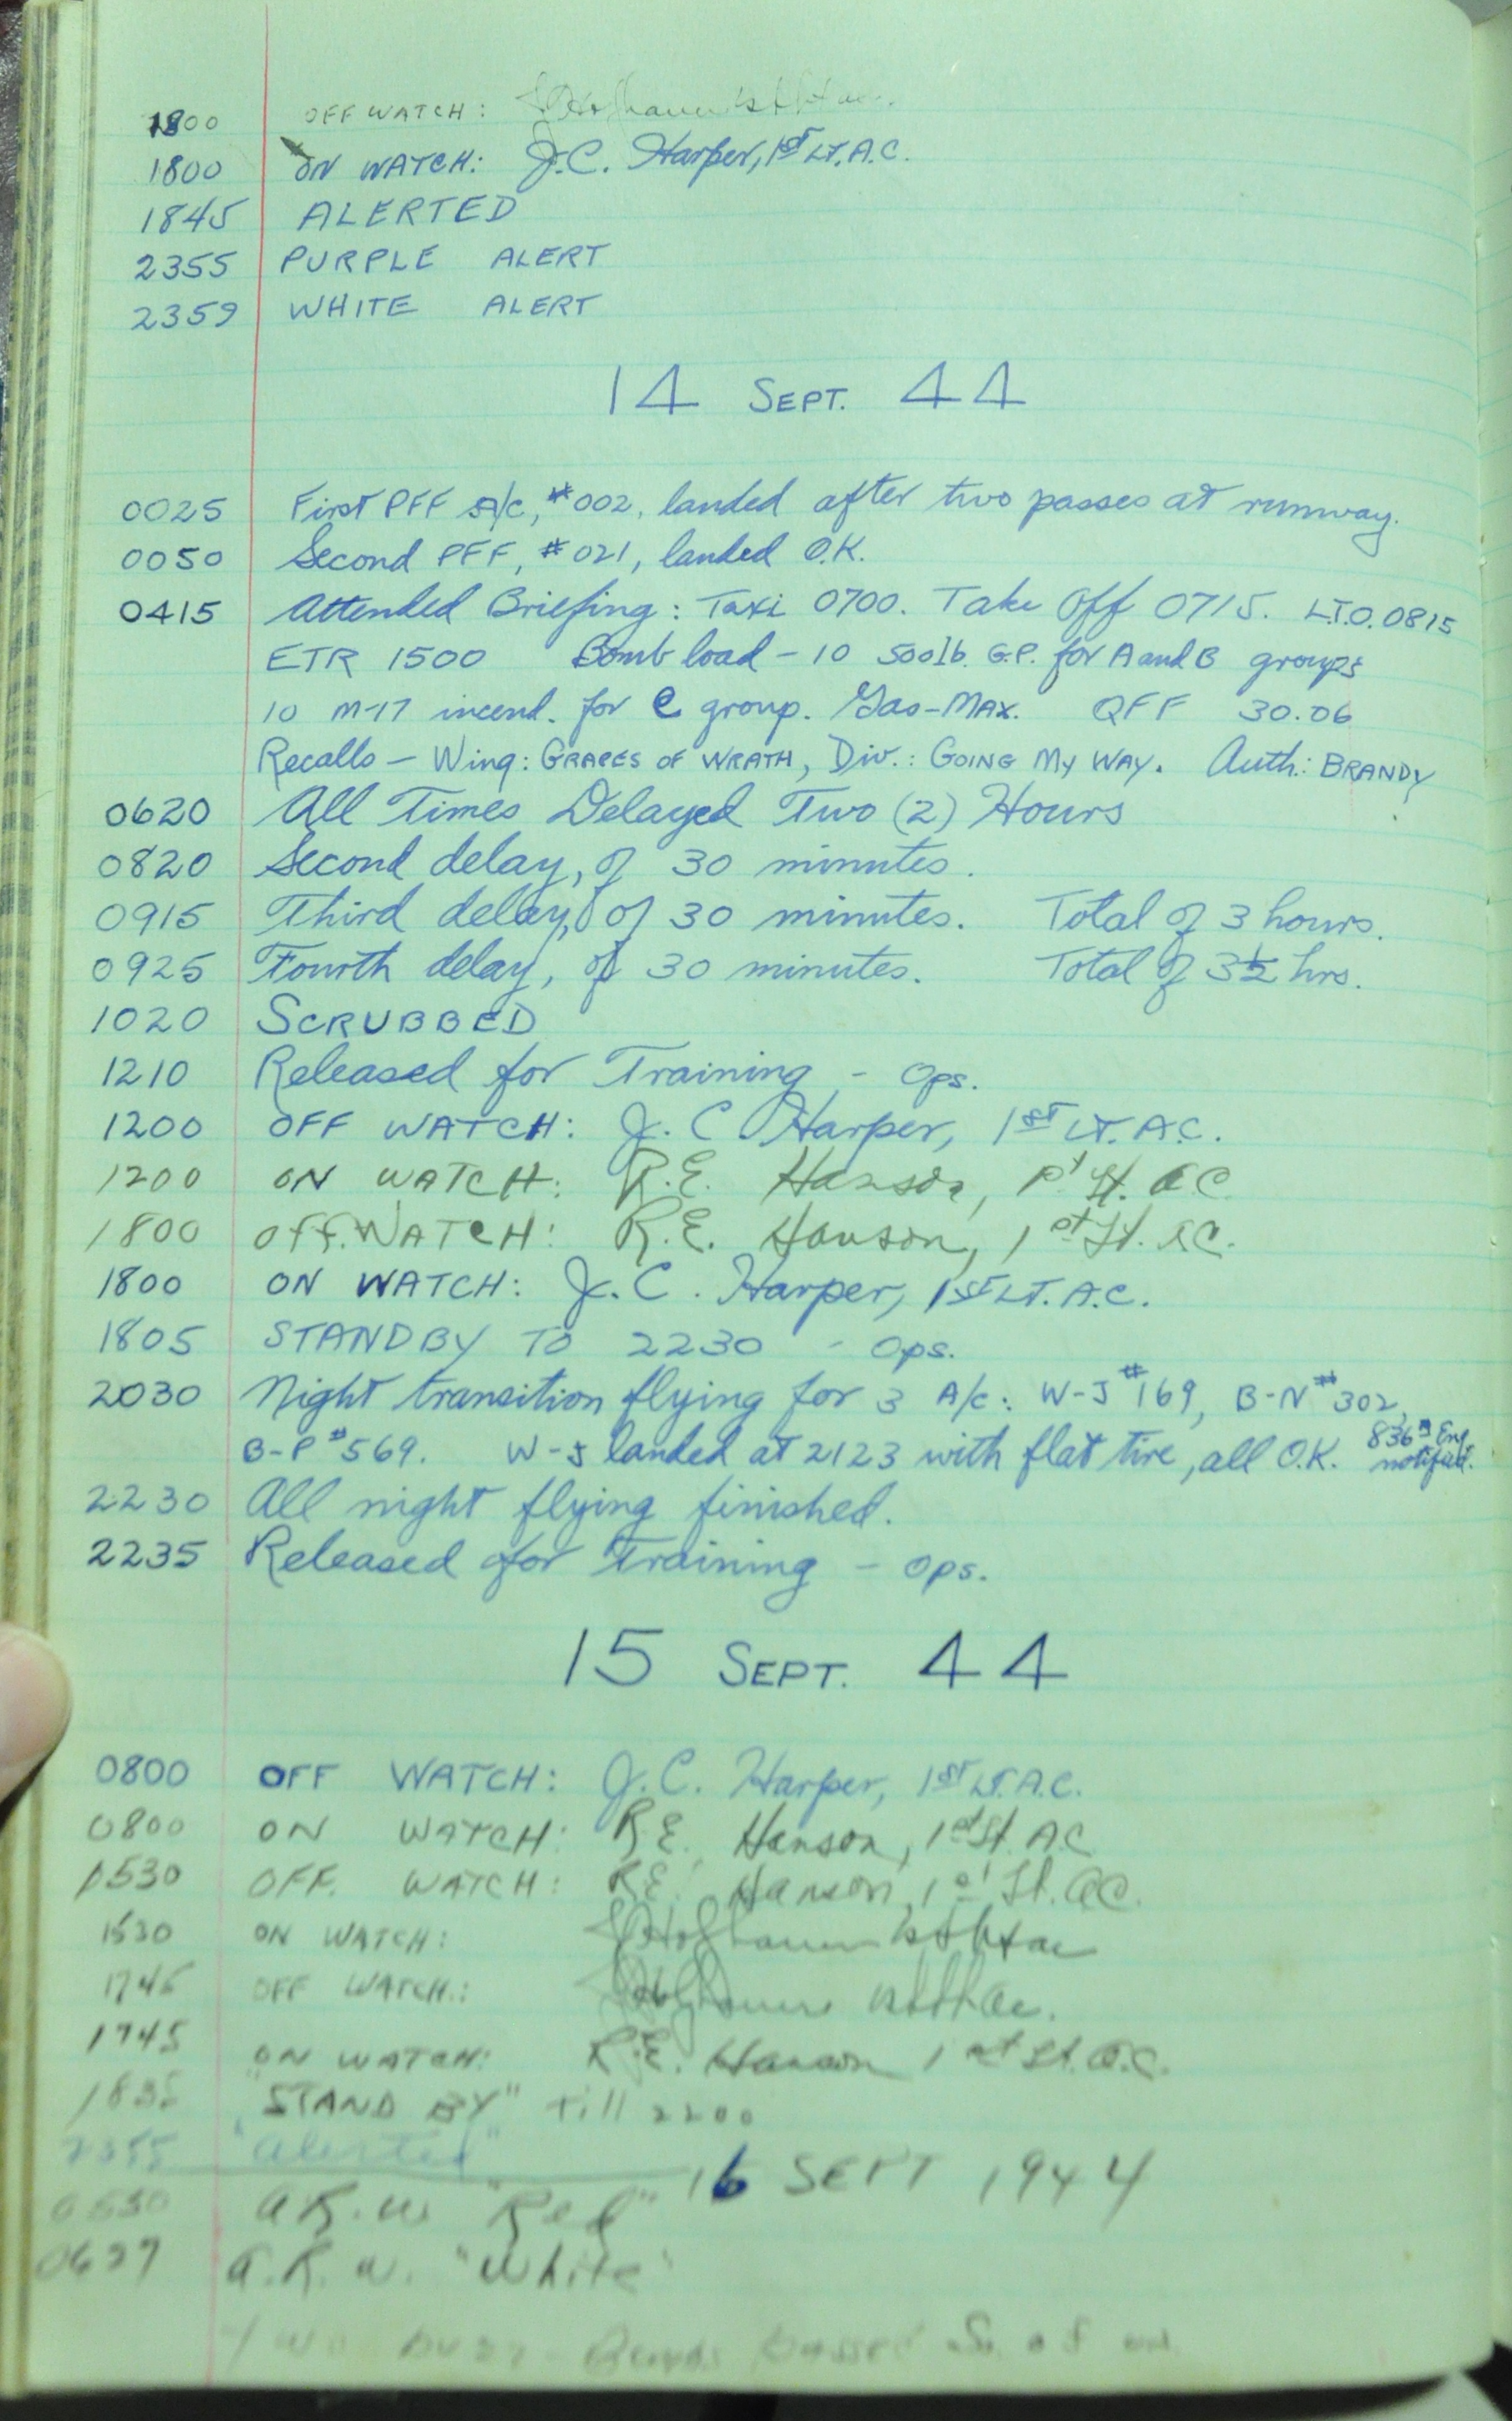 1800 OFF WATCH:
1800 ON WATCH: J.C. Harper, 1ST LT. A.C.
1845 ALERTED
2355 PURPLE ALERT
2359 WHITE ALERT
14 SEPT. 44
0025 First PFF A/C, #002, landed after two passes at runway.
0050 Second PFF, #021, landed O.K.
0415 Attended Briefing: Taxi 0700. Take Off 0715. L.T.O. 0815
ETR 1500 Bomb load - 10 500 lb. G.P. for A and B groups
10 M-17 incend. for C group. Gas-MAX. QFF 30.06
Recalls - Wing: GRAPES OF WRATH, Div.: GOING MY WAY. Auth.: BRANDY
0620 All Times Delayed Two (2) Hours
0820 Second delay, of 30 minutes.
0915 Third delay, of 30 minutes. Total of 3 hours.
0925 Fourth delay, of 30 minutes. Total of 3½ hrs.
1020 SCRUBBED
1210 Released for Training - Ops.
1200 OFF WATCH: J. C Harper, 1ST LT. A.C.
1200 ON WATCH: R.E. Hanson, 1st Lt. A.C.
1800 Off. WATCH: R.E. Hanson, 1st Lt. A.C.
1800 ON WATCH: J. C. Harper, 1ST LT. A.C.
1805 STANDBY TO 2230 - Ops.
2030 Night transition flying for 3 A/c: W-J #169, B-N #302,
B-P #569. W-J landed at 2123 with flat tire, all O.K. 836th Eng. notified.
2230 All night flying finished.
2235 Released for Training - Ops.
15 SEPT. 44
0800 OFF WATCH: J.C. Harper, 1ST LT. A.C.
0800 ON WATCH: R.E. Hanson, 1st Lt. A.C.
1530 OFF. WATCH: R.E. Hanson, 1st Lt. A.C.
1530 ON WATCH:
1745 OFF WATCH:
1745 ON WATCH: R.E. Hanson 1st Lt. A.C.
1835 "STAND BY" till 2200
2355 "Alerted"
16 SEPT 1944
0530 A.R.W "Red"
0627 A.R.W. "White"
Two Buzz-Bombs passed